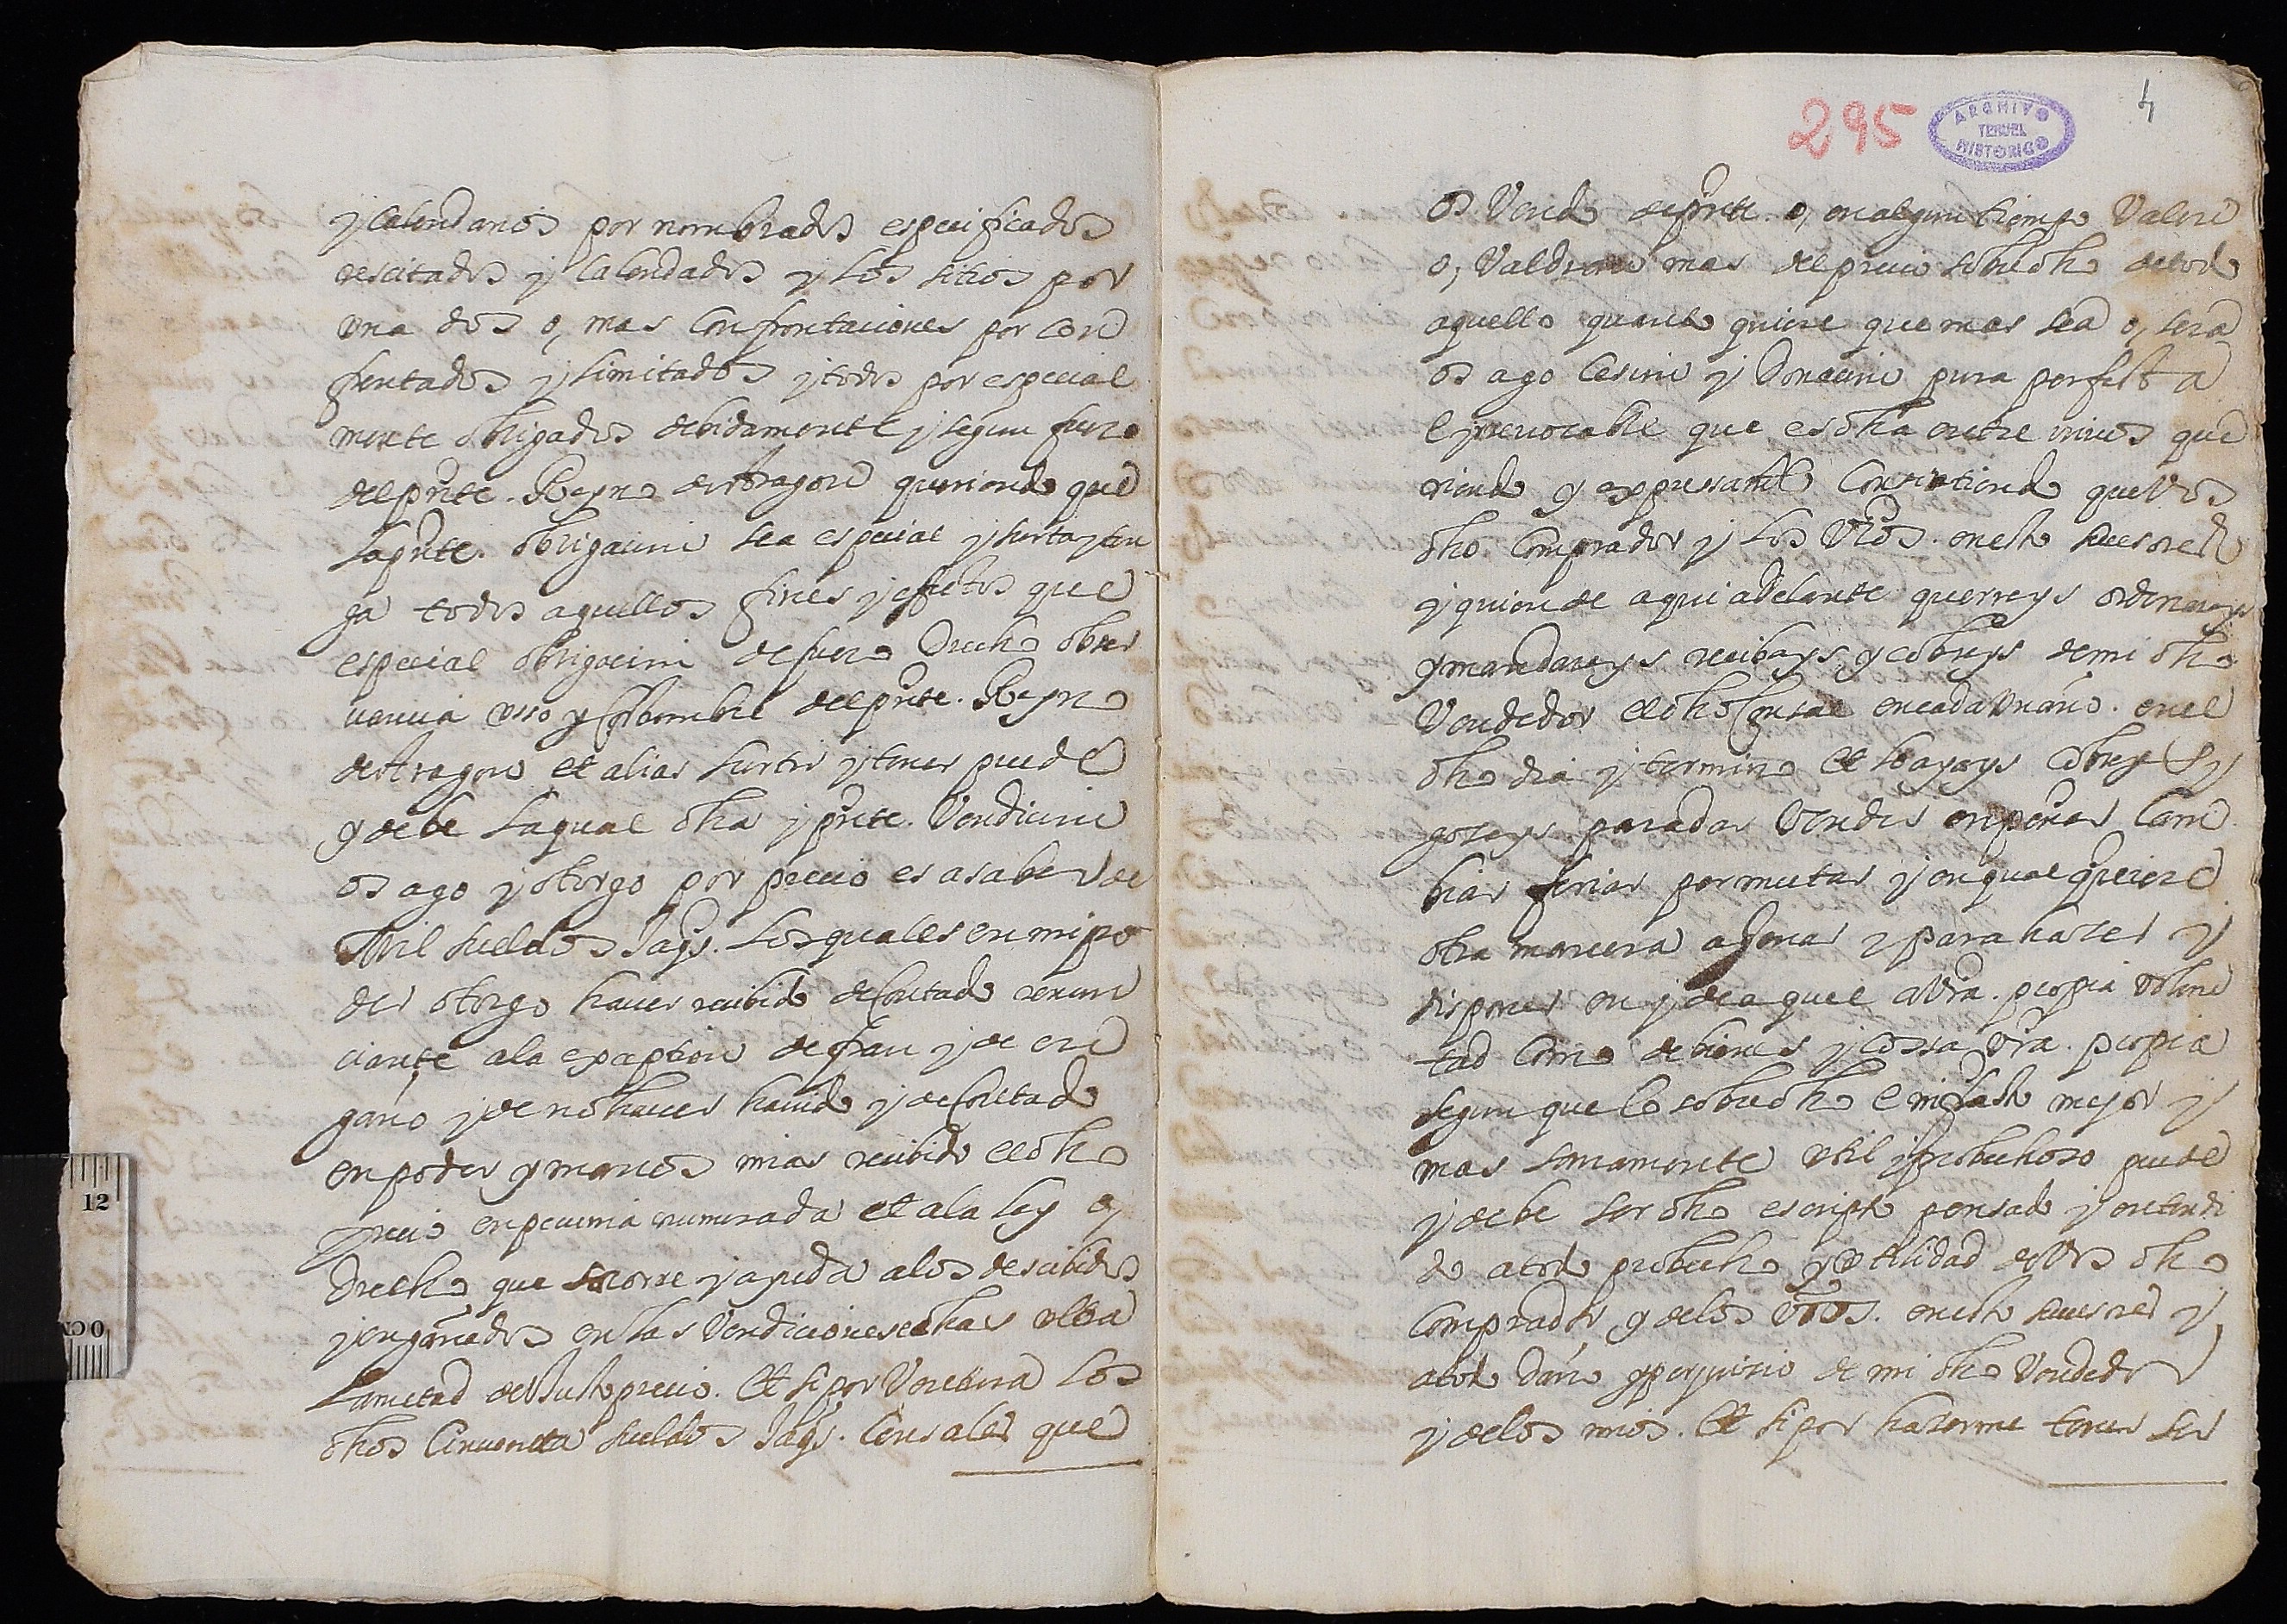 y Calendarios por nombrados especificados
rescitados y Calendados y Los sitios por
una dos o, mas Confrontaciones por con
frentados y Limitados y todos por especial
mente obligados debidamente y segun fuero
del pnte. Reyno de Aragon queriendo que
la pnte. obligacion sea especial y surta y ten
ga todos aquellos fines y efectos que
especial obligacion de fuero Drecho obser
vancia usso y Costumbre del pnte. Reyno
de Aragon et alias surtir y tener puede
y debe La qual dha y pnte. Vendicion
os ago y otorgo por precio es a saber de
Mil sueldos Jaqs. Los quales en mi po
der otorgo haver recibido de Contado renun
ciante a la exception de frau y de en
gaño y de no haver havido y de Contado
en poder y manos mias recibido el dho
precio en pecunia numerada et a la Ley o,
Drecho que socorre y ayuda a los decebidos
y engañados en las Vendiciones echas ultra
La mitad del Justo precio. Et si por Ventura Los
dhos Cinquenta sueldos Jaqs. Censales que
295
ARCHIVO
TERUEL
HISTORICO
4
os Vendo de pnte. o, en algun tiempo Valen
o, Valdran mas del precio sobredho de todo
aquello quanto quiere que mas sea o, sera
os ago Cesion y Donacion pura perfecta
e yrrevocable que es dha entre vivos que
riendo y expressamte Consintiendo que Vos
dho Comprador y Los Vros. en esto sucesores
y quien de aqui adelante querreys ordenareys
y mandareys recibays y cobreys de mi dho
Vendedor el dho Censal en cada un año. en el
dho dia y termino et lo ayays cobreys y
gozeys para dar Vender enpeñar Cam
biar feriar permutar y en qual quiere
otra manera agenar y para hazer y
disponer en y de aquel a Vra. propia volun
tad Como de bienes y cossa Vra. propia
segun que lo sobredho e infrascto mejor y
mas sanamente util y probechoso puede
y debe ser dho escripto pensado y entendi
do a todo probecho y utilidad de Vos dho
Comprador y de los Vros. en esto sucesores y
a todo daño y perjuicio de mi dho Vendedor
y de los mios. Et si por hazerme tener ser